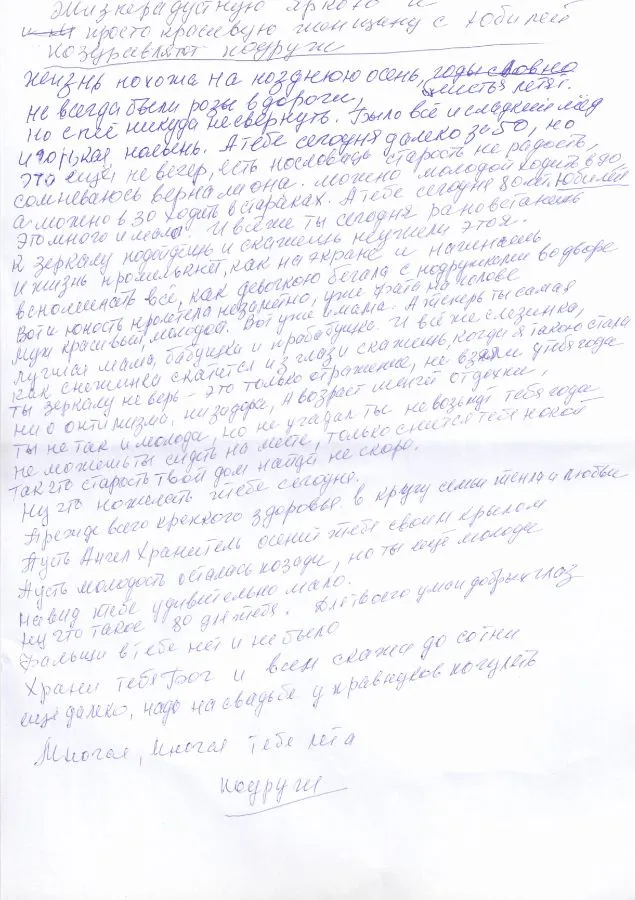 Жизнерадустную яркою и
просто красивую женщину с юбилеем
поздравляют подруги
Жизнь похожа на позднюю осень, годы словно
листья летят.
не всегда были розы в дороги,
но с неё никуда не свернуть. Было всё и сладкий мёд
и горькая полынь. А тебе сегодня далеко за 50, но
это ещё не вечер, есть пословица старость не радость,
сомневаюсь верна ли она. можно молодой ходить в 80,
а можно в 30 ходить в стараках. А тебе сегодня 80 лет юбилей
это много и мало. И всё же ты сегодня рано встанешь
к зеркалу подойдёшь и скажешь неужели это я.
и жизнь промелькнёт, как на экране и начинаешь
вспоминать всё, как девочкою бегала с подружками во дворе
Вот и юность пролетела незаметно, уже фата на голове
муж красивый, молодой. Вот уже и мама. А теперь ты самая
лучшая мама, бабушка и прабабушка. И всё же слезинка,
как снежинка скатится из глаз и скажешь, когда я такою стала
ты зеркалу не верь - это только отражение, не взяли у тебя года
ни оптимизма, ни задора, А возраст шепчет отдохни,
ты не так и молода, но не угадал ты не возьмут тебя года
не можешь ты сидеть на месте, только снится тебе покой
так что старость твой дом найдёт не скоро.
Ну что пожелать тебе сегодня.
Прежде всего крепкого здоровья в кругу семьи тепла и любви
Пусть Ангел Хранитель осенит тебя своим крылом
Пусть молодость осталась позади, но ты ещё молода
на вид тебе удивительно мало.
ну что такое 80 для тебя. Для твоего ума и добрых глаз
Фальши в тебе нет и не было
Храни тебя Бог и всем скажи до сотни
ещё далеко, надо на свадьбе у правнуков погулять
Многая, многая тебе лета
подруги